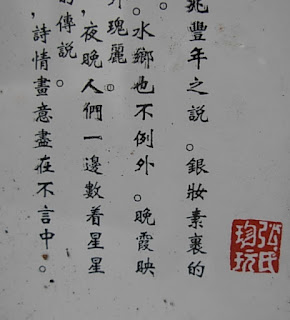 兆豐年之說。銀妝素裹的
。水鄉也不例外。晚霞映
瑰麗。
，夜晚人們一邊數着星星
的傳說。
，詩情畫意盡在不言中。